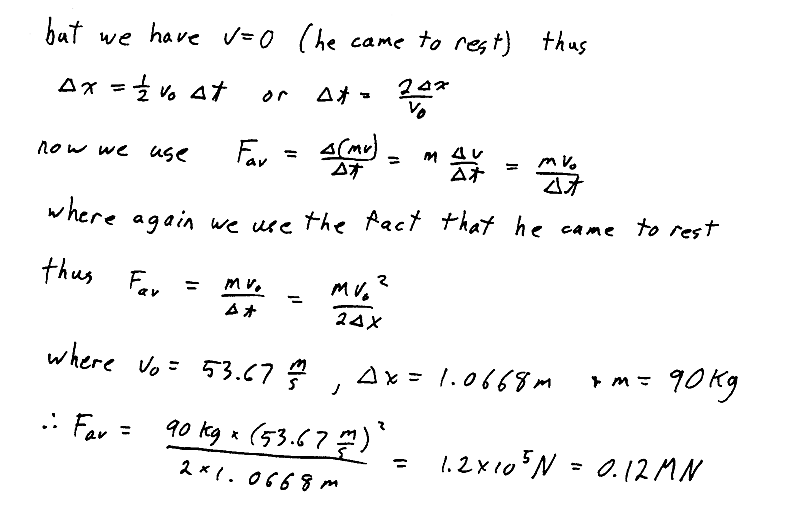 but we have v=0 (he came to rest) thus
Δx = 1/2 v₀ Δt or Δt = 2Δx/v₀
now we use F_av = Δ(mv)/Δt = m Δv/Δt = mv₀/Δt
where again we use the fact that he came to rest
thus F_av = mv₀/Δt = mv₀²/2Δx
where v₀ = 53.67 m/s , Δx = 1.0668m & m = 90kg
∴ F_av = 90 kg × (53.67 m/s)²/2×1.0668m = 1.2×10⁵N = 0.12MN